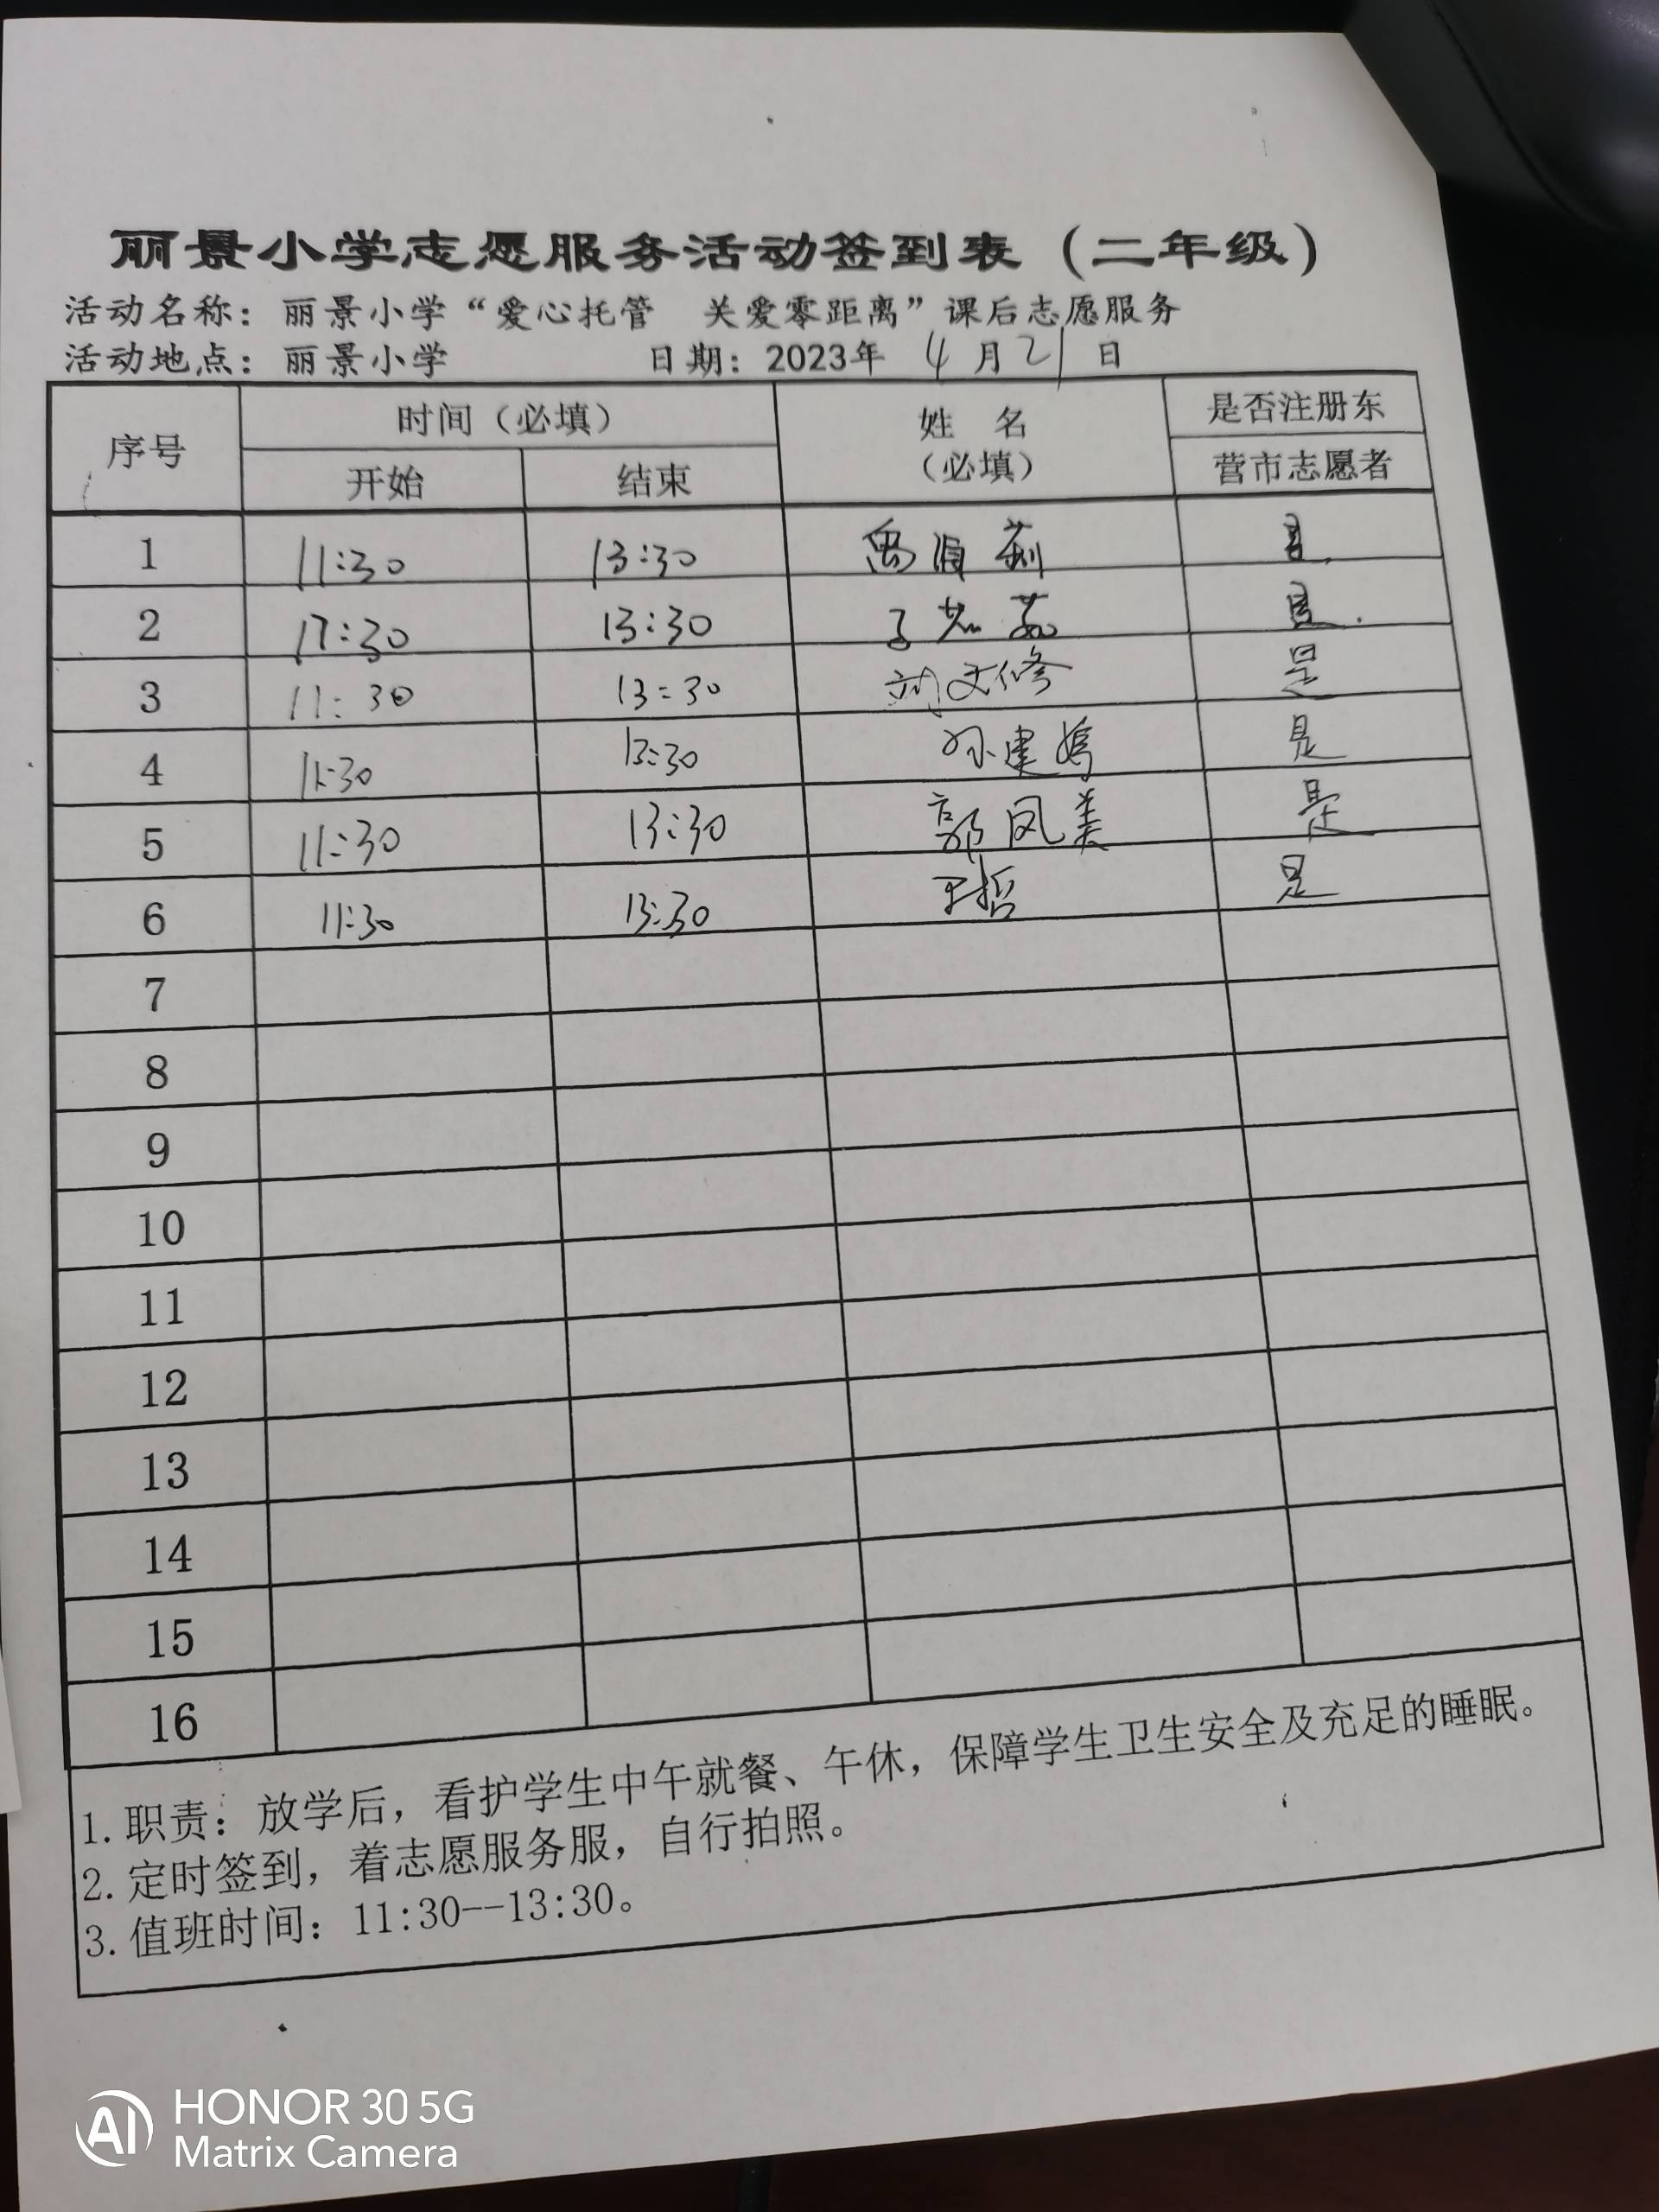 丽景小学志愿服务活动签到表（二年级）
活动名称：丽景小学“爱心托管 关爱零距离”课后志愿服务
活动地点：丽景小学 日期：2023年 4 月 21 日
序号 时间（必填） 姓 名 （必填） 是否注册东
开始 结束 营市志愿者
1 11:30 13:30
2 13:30
3 11:30 13:30 刘文修 是
4 11:30 13:30 孙建嫦 是
5 11:30 13:30 郭凤美 是
6 11:30 13:30 王哲 是
7
8
9
10
11
12
13
14
15
16
1.职责：放学后，看护学生中午就餐、午休，保障学生卫生安全及充足的睡眠。
2.定时签到，着志愿服务服，自行拍照。
3.值班时间：11:30--13:30。
AI HONOR 30 5G
Matrix Camera